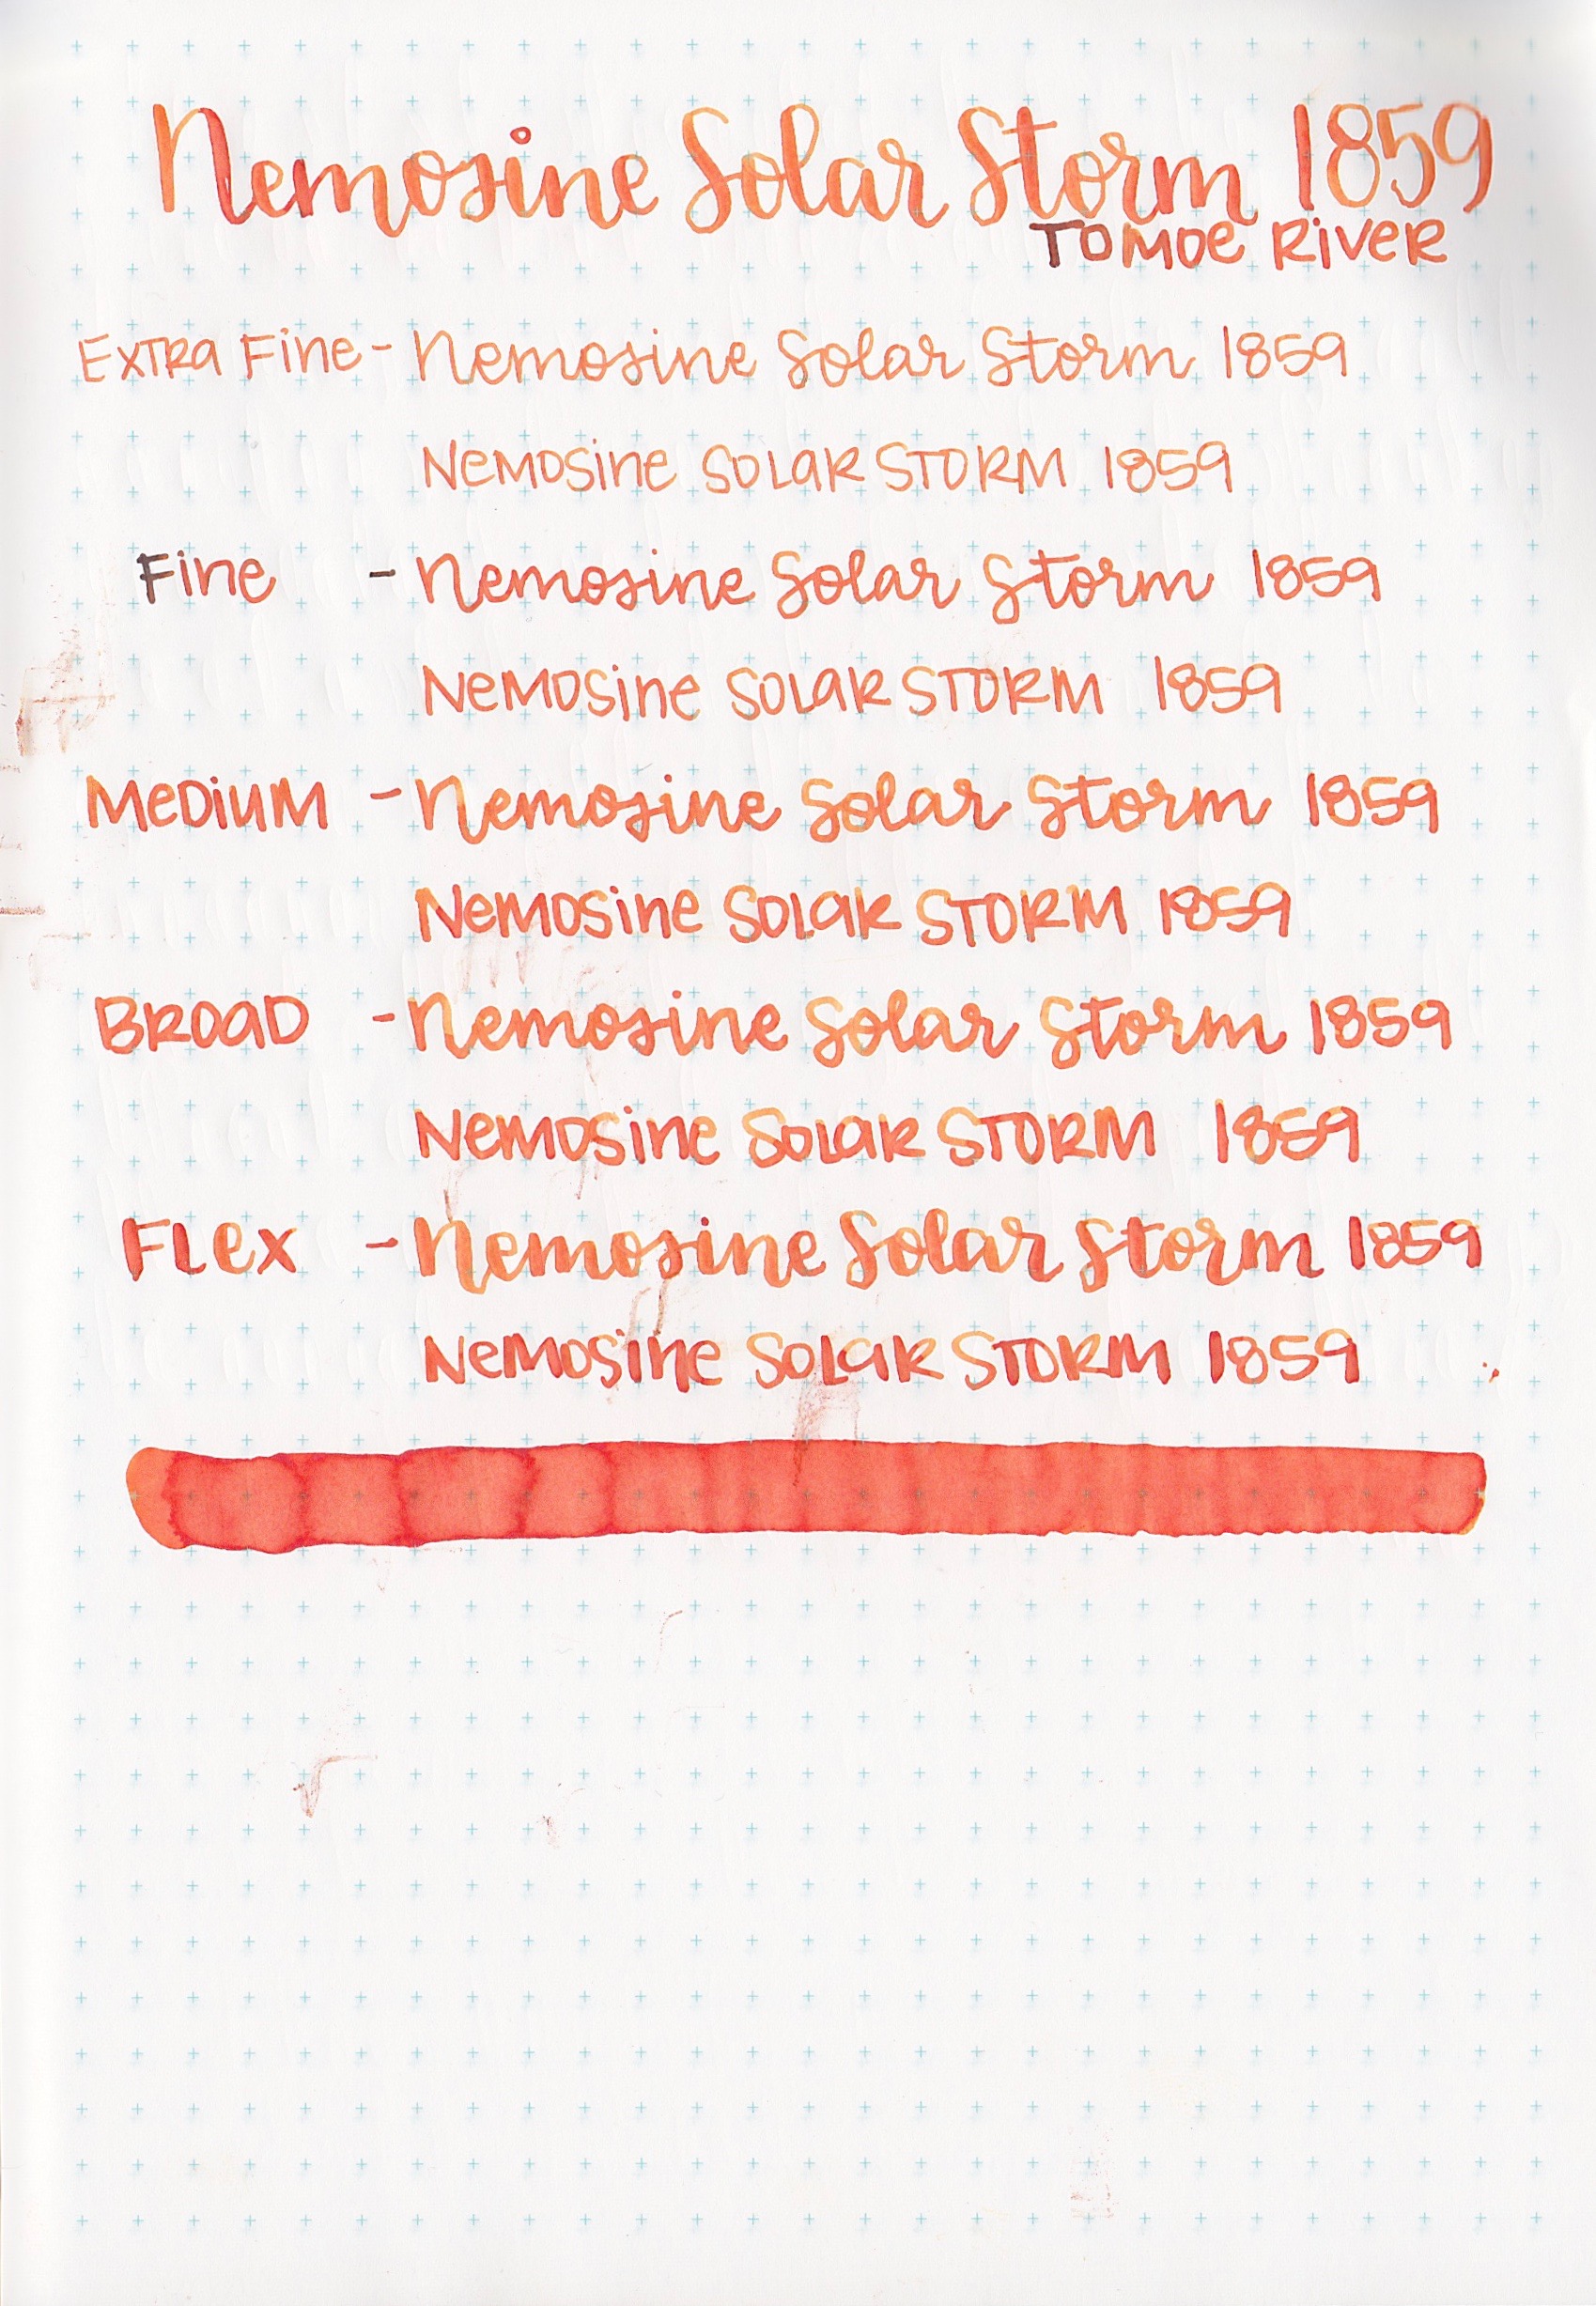 Nemosine Solar Storm 1859
Tomoe River
Extra Fine - Nemosine Solar Storm 1859
Nemosine Solar Storm 1859
Fine - Nemosine Solar Storm 1859
Nemosine Solar Storm 1859
Medium - Nemosine Solar Storm 1859
Nemosine Solar Storm 1859
Broad - Nemosine Solar Storm 1859
Nemosine Solar Storm 1859
Flex - Nemosine Solar Storm 1859
Nemosine Solar Storm 1859